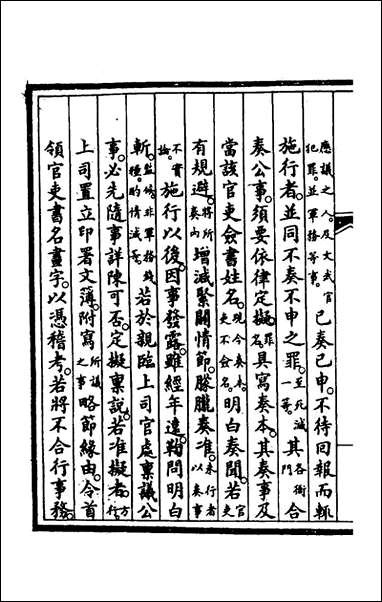 應議之人及文武官犯罪。並軍務等事。已奏已申。不待回報而輒
施行者。並同不奏不申之罪。至死減一等。其各衙門合
奏公事。須要依律定擬。罪名。具寫奏本。其奏事及
當該官吏僉書姓名。現今奏本。吏不僉名。明白奏聞。若官吏
有規避。將所奏內增減緊關情節。朦朧奏准。未行者以奏事
不實論。施行以後。因事發露。雖經年遠。勒問明白
斬。監候。非軍務錢糧。酌情減等。若於親臨上司官處稟議公
事。必先隨事詳陳可否。定擬稟說。若准擬者。方行。
上司置立印署文簿。附寫所議之事略節緣由。令首
領官吏書名畫字。以憑稽考。若將不合行事務。